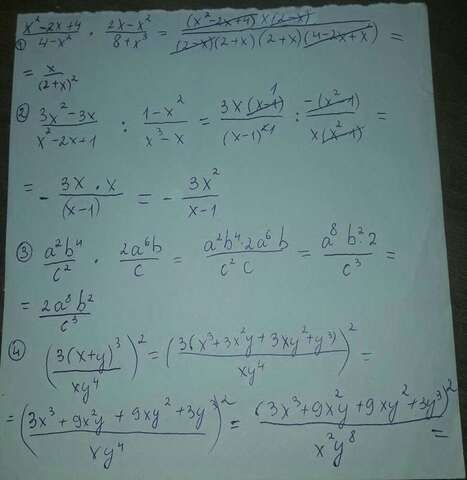 ① (x²-2x+4)/(4-x²) · (2x-x²)/(8+x³) = ((x²-2x+4)x(2-x))/((2-x)(2+x)(2+x)(4-2x+x)) =
= x/(2+x)²
② (3x²-3x)/(x²-2x+1) : (1-x²)/(x³-x) = (3x(x-1) 1)/((x-1)²1) : (-(x²-1))/(x(x²-1)) =
= - (3x·x)/(x-1) = - 3x²/(x-1)
③ a²b⁴/c² · 2a⁶b/c = (a²b⁴·2a⁶b)/(c²c) = (a⁸·b²·2)/c³ =
= 2a⁸b²/c³
④ (3(x+y)³/xy⁴)² = (3(x³+3x²y+3xy²+y³)/xy⁴)² =
= ((3x³+9x²y+9xy²+3y³)/xy⁴)² = (3x³+9x²y+9xy²+3y³)²/x²y⁸ =